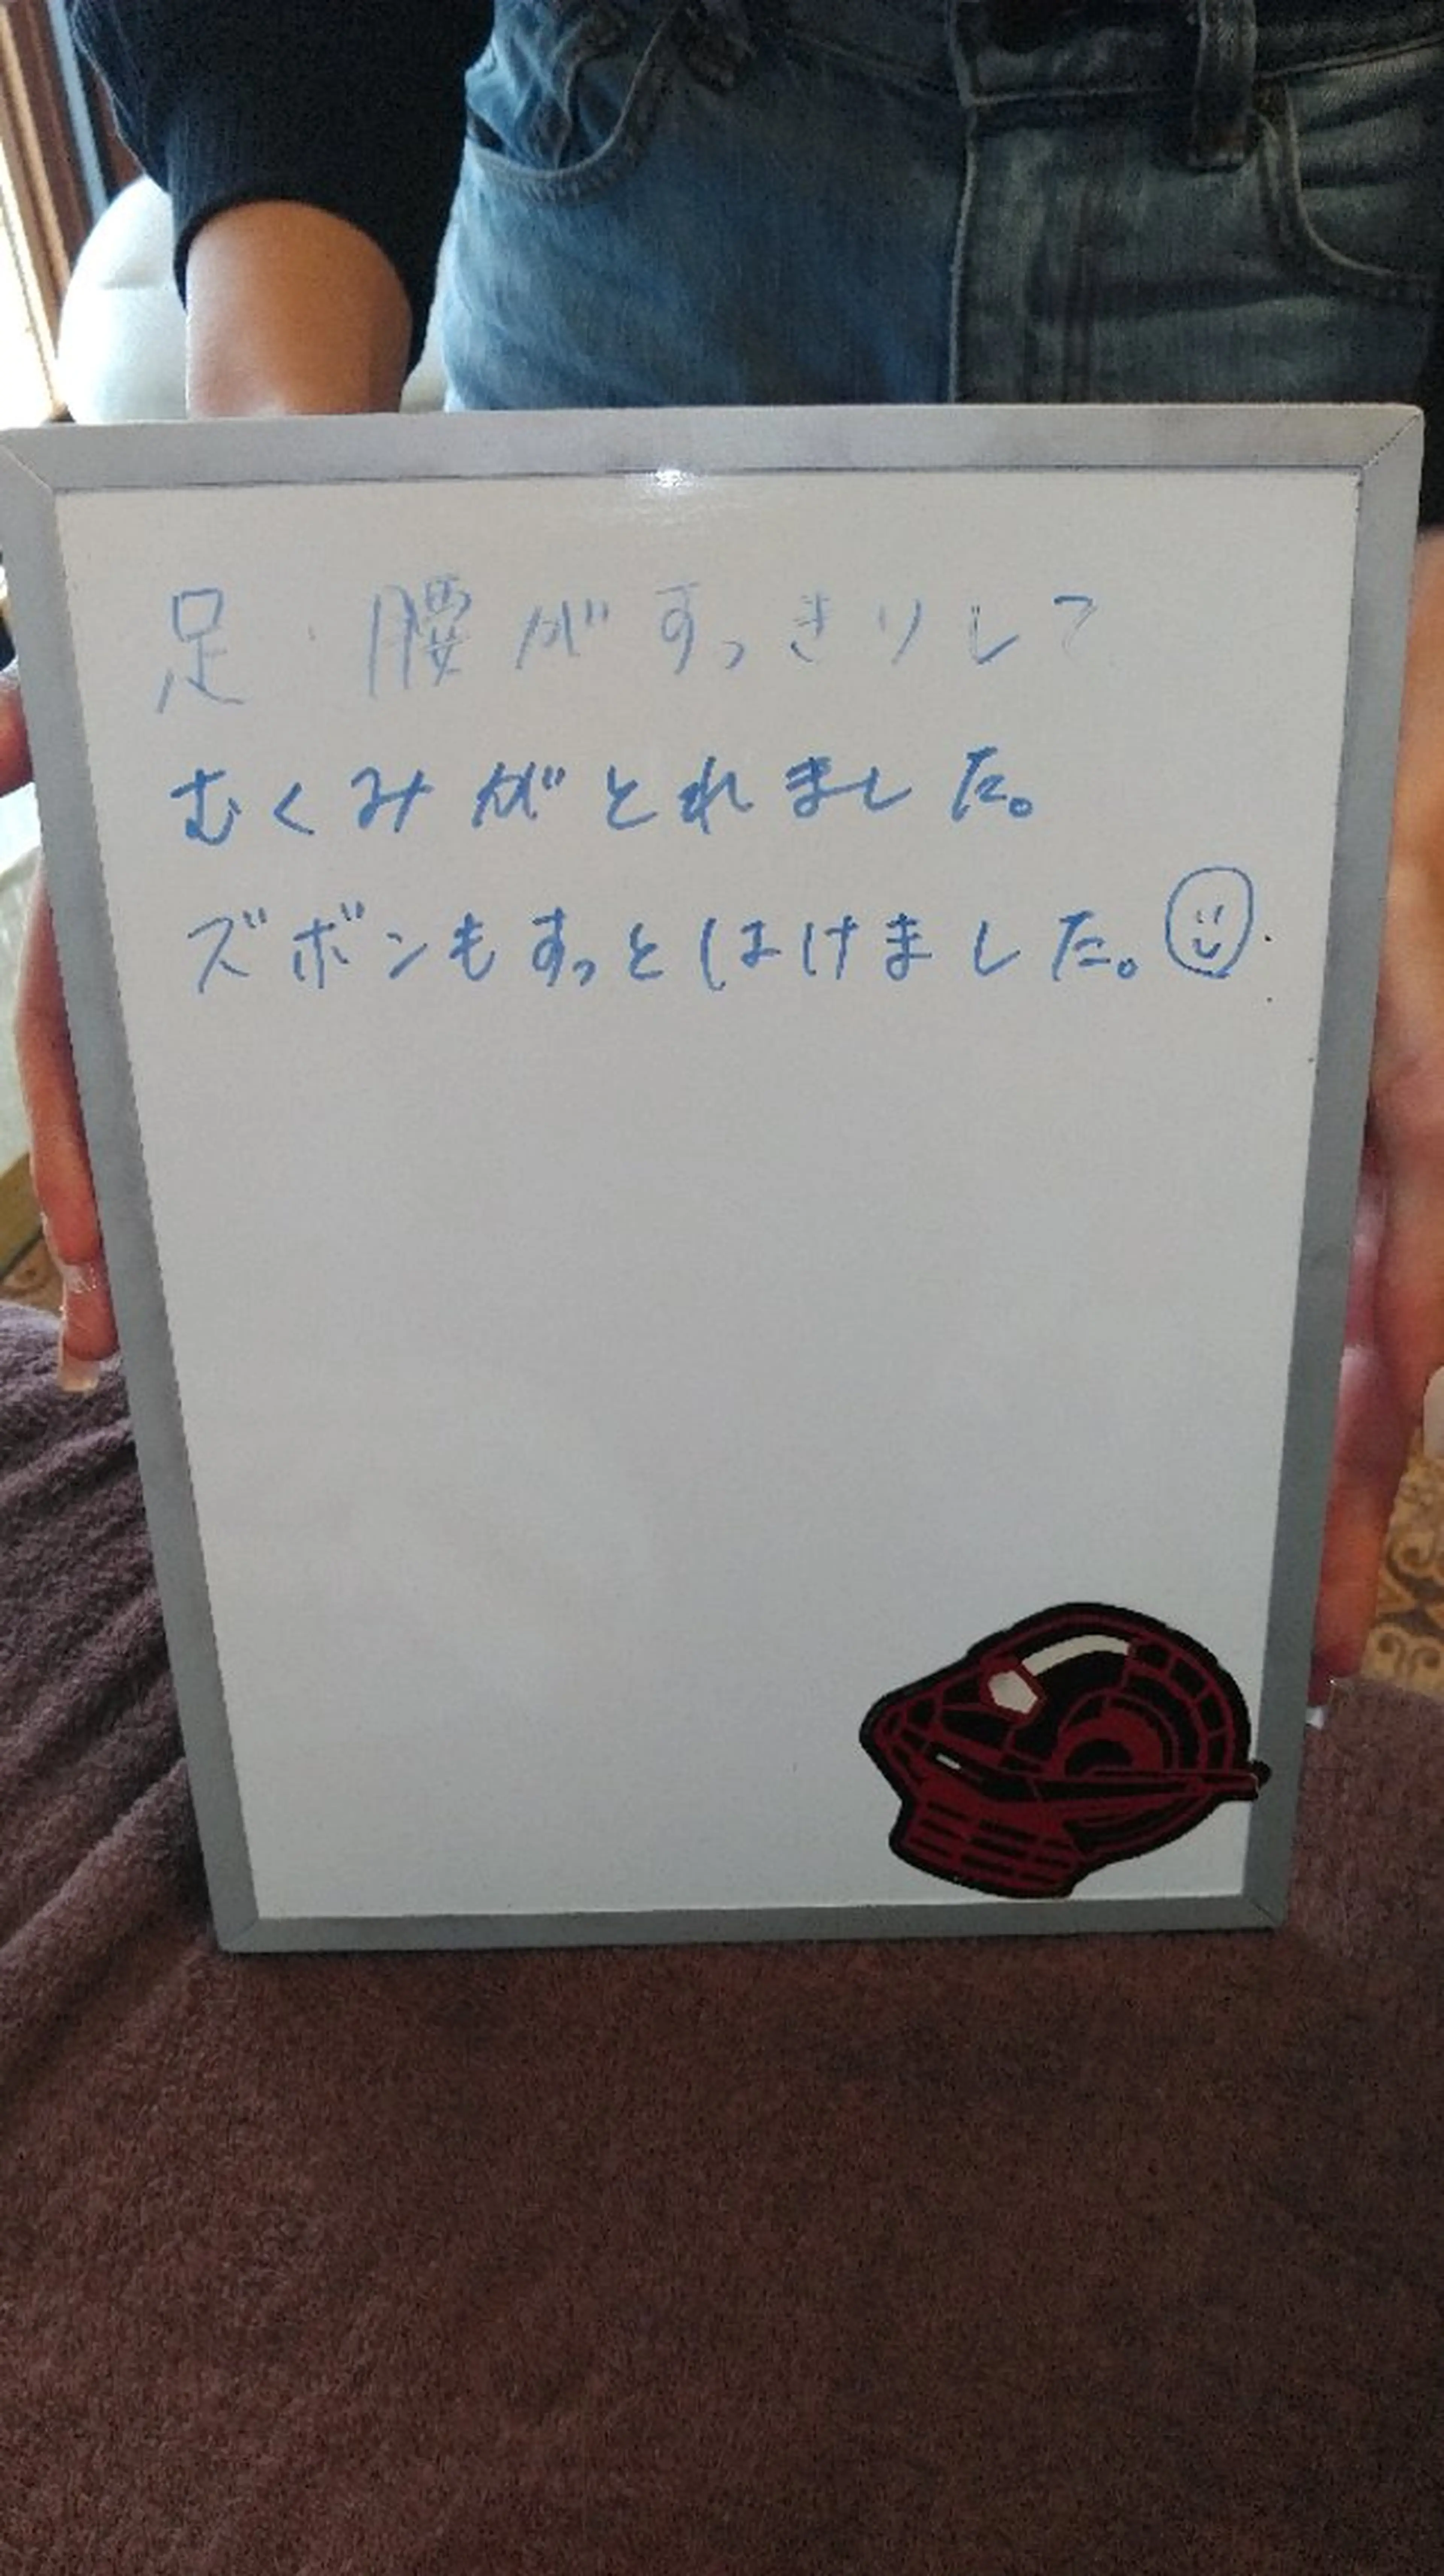 足・腰がすっきりして
むくみがとれました。
ズボンもすっとはけました。